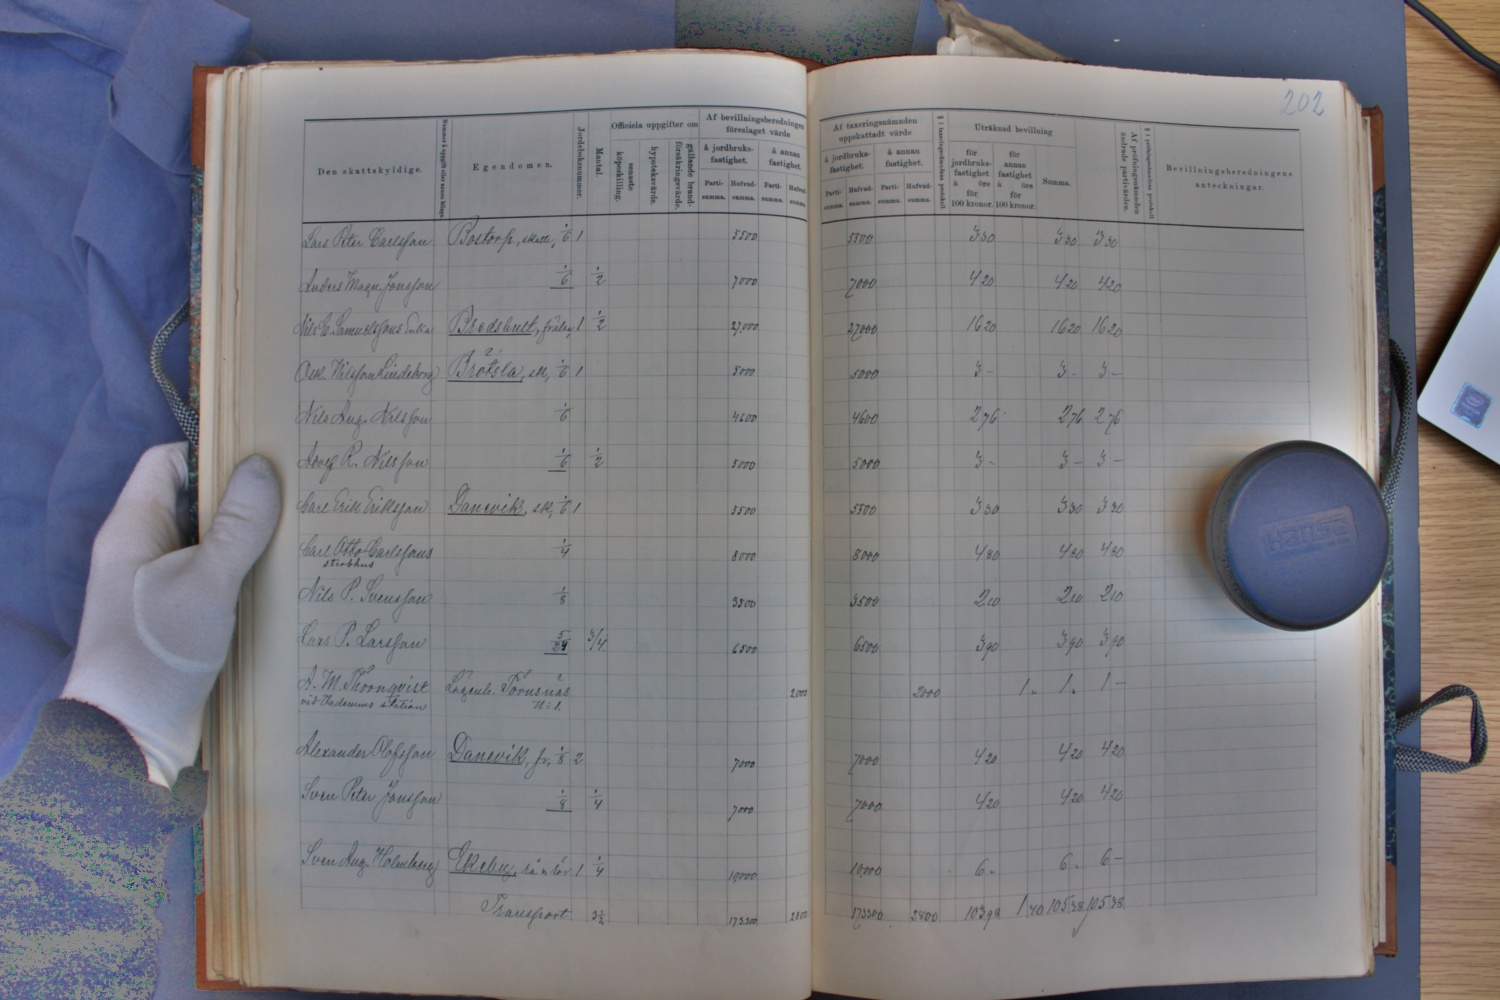 202
Den skattskyldige.
Egendomen.
Jordeboksnummer.
Mantal.
Officiela uppgifter om
senaste köpeskilling.
hypoteksvärde.
gällande brandförsäkringsvärde.
Af bevillningsberedningen föreslaget värde
å jordbruksfastighet.
å annan fastighet.
Parti-summa.
Hufvud-summa.
Parti-summa.
Hufvud-summa.
Af taxeringsnämnden uppskattadt värde
å jordbruks-fastighet.
å annan fastighet.
Parti-summa.
Hufvud-summa.
Parti-summa.
Hufvud-summa.
Uträknad bevillning
för jordbruks-fastighet à öre för 100 kronor.
för annan fastighet à öre för 100 kronor.
Summa.
Af pröfningsnämnden ändrade partivärden.
Bevillningsberedningens anteckningar.
Lars Peter Carlsson Bostorp, skatte, 1/6 1 5500 5500 3 30 3 30 3 30
Anders Magn. Jonsson 1/6 1/2 7000 7000 4 20 4 20 4 20
Nils G. Samuelssons Enka Brodshult, frälse, 1 1/2 27,000 27000 16 20 16 20 16 20
Osk. Nilsson Lindeborg sk, 1/6 1 5000 5000 3 - 3 - 3 -
Nils Aug. Nilsson 1/6 4600 4600 2 76 2 76 2 76
Adolf R. Nilsson 1/6 1/2 5000 5000 3 - 3 - 3 -
Carl Erik Eriksson Danevik, sk, 1/6 1 5500 5500 3 30 3 30 3 30
Carl Otto Carlssons 1/4 8000 8000 4 80 4 80 4 80
sterbhus
Nils P. Svensson 1/8 3500 3500 2 10 2 10 2 10
Lars P. Larsson 5/24 3/4 6500 6500 3 90 3 90 3 90
A. M. Thornqvist Lägenh. Törnsnäs 2000 2000 1 - 1 - 1 -
station No 1.
Alexander Olofsson Danevik, fr, 1/8 2 7000 7000 4 20 4 20 4 20
Sven Peter Jonsson 1/8 1/4 7000 7000 4 20 4 20 4 20
Sven Aug. Holmberg Ekeby, 1 1/4 10,000 10,000 6 - 6 - 6 -
Transport 173300 173300 2400 103 98 1 40 105 38 105 38